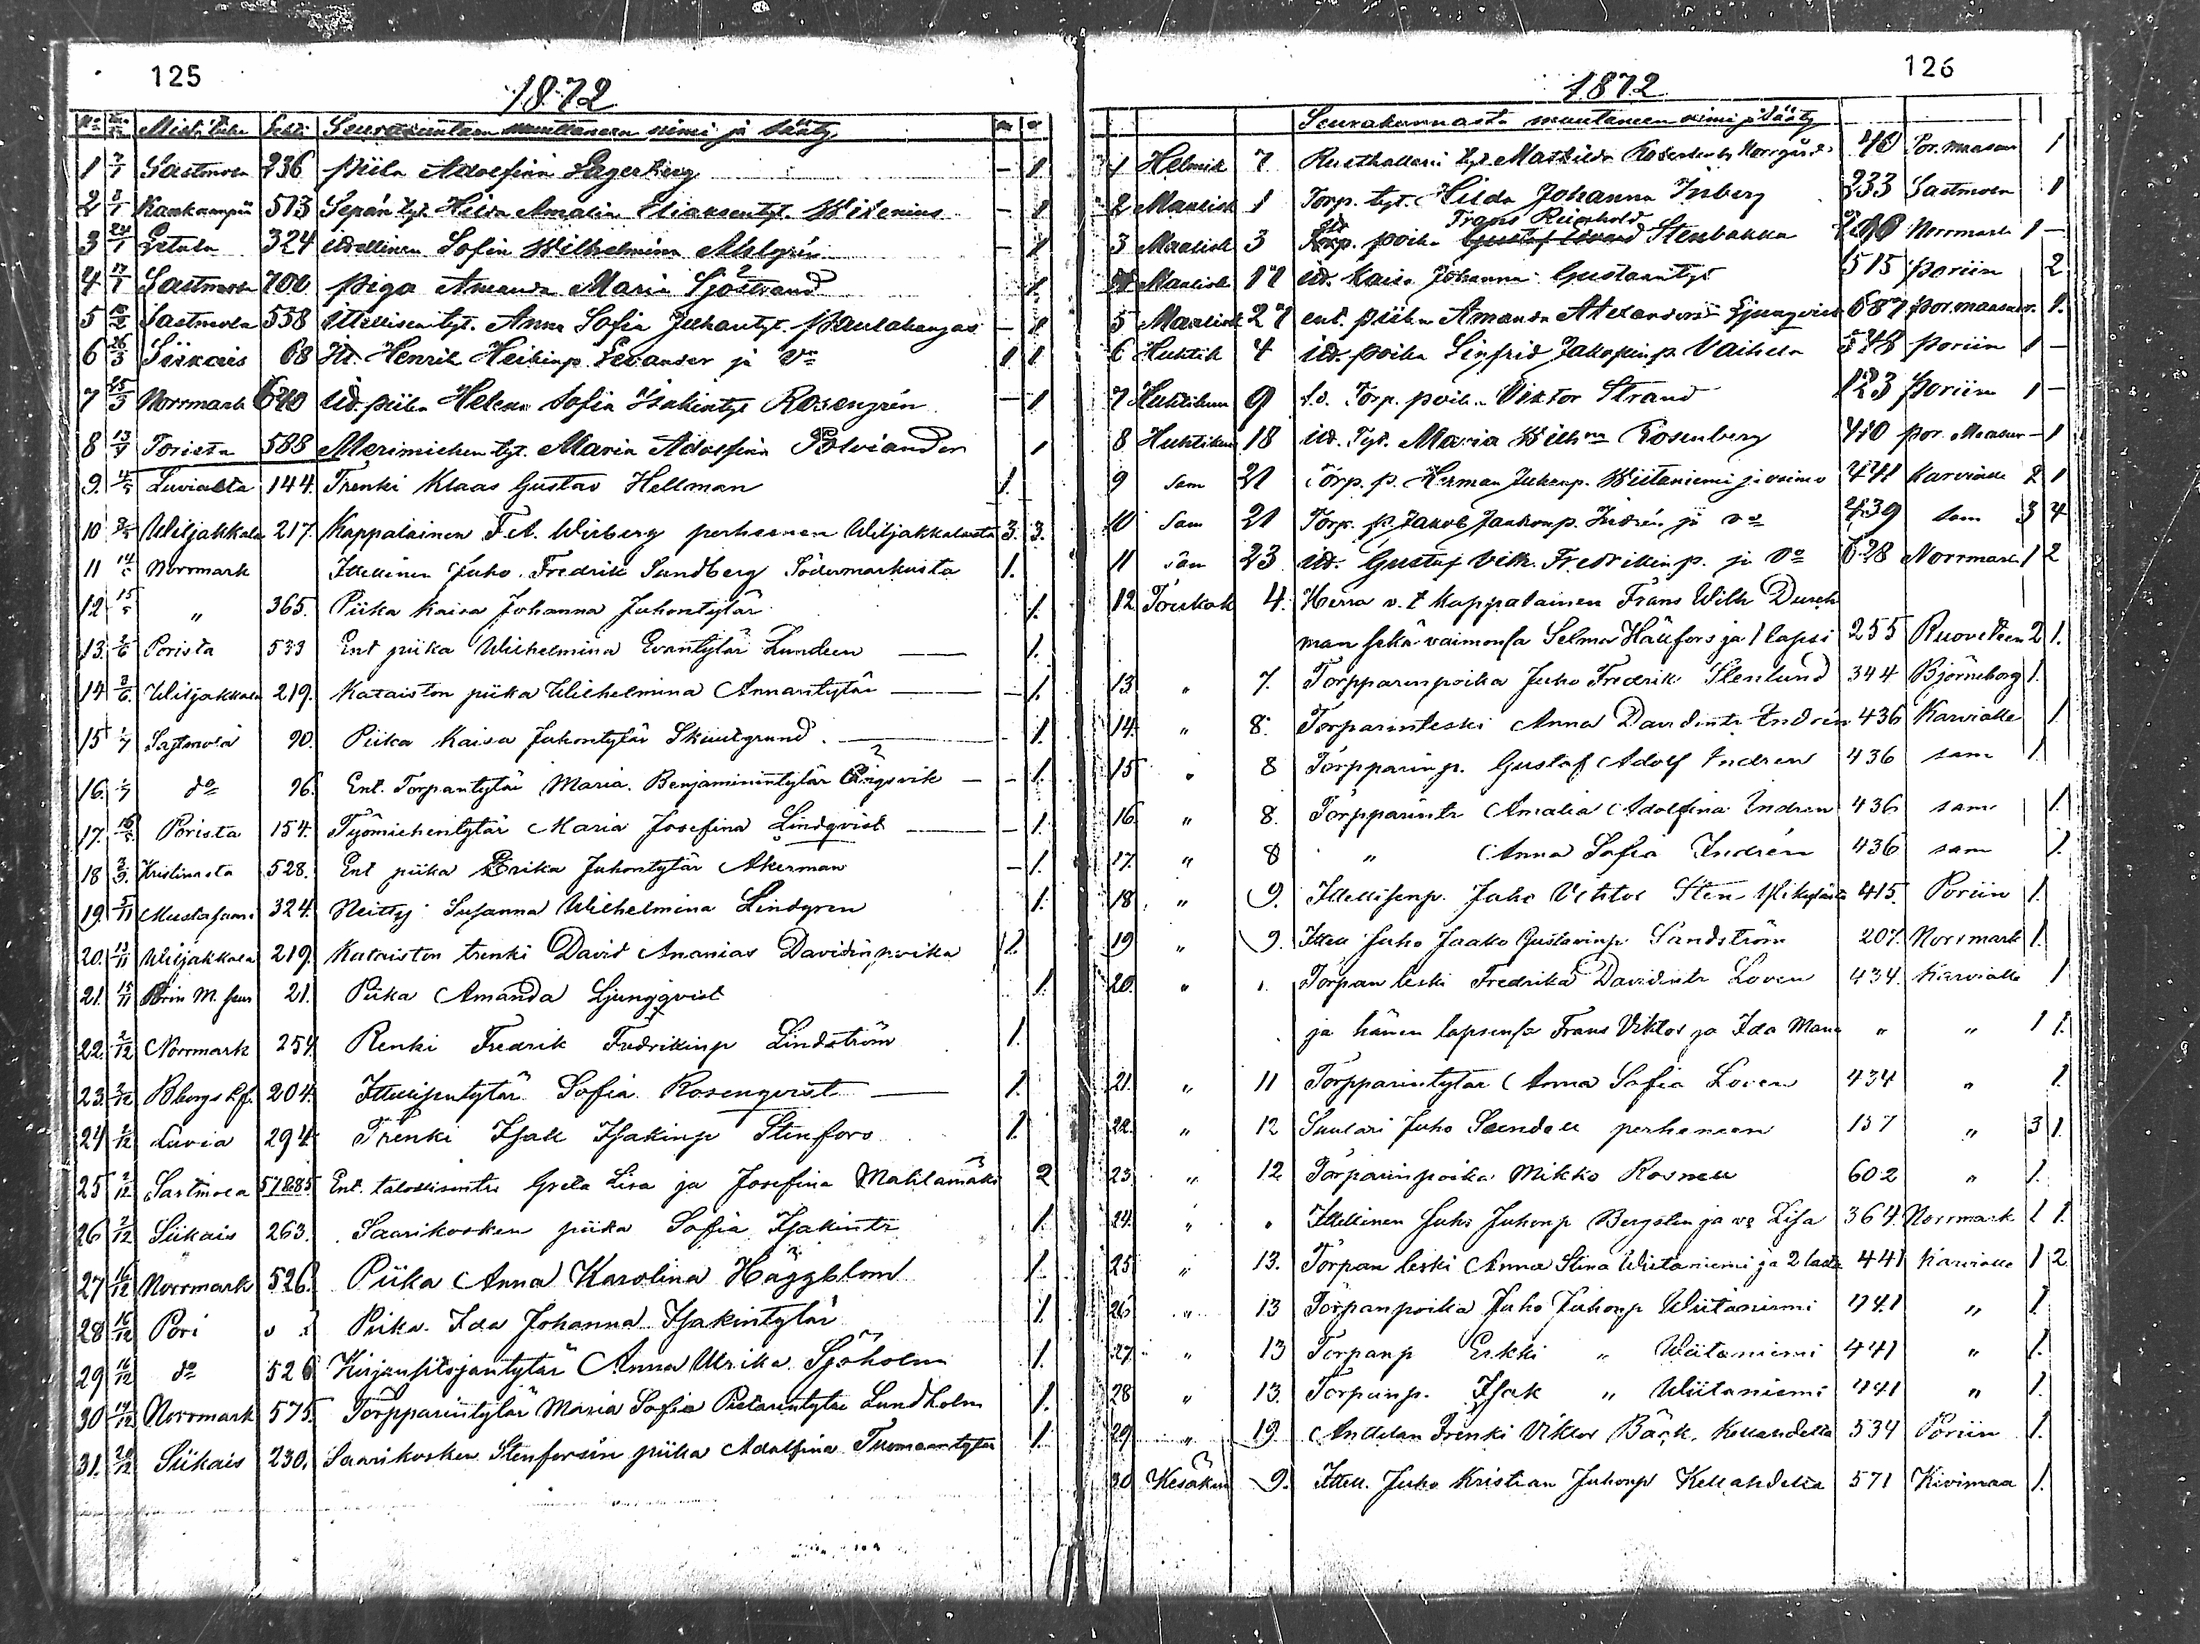 125
1872
No Mistä tulee Seurakuntaan muuttaneen nimi ja sääty
1 7/1 Sastmola 236 piika Adolfina Lagerberg - 1
2 Kankaanpää 513 Sepän tyt. Hilda Amalia Eliaksentyt. Widenius - 1
3 24/1 324 itsellinen Sofia Wilhelmina Ahlgrén - 1
4 Sastmola 700 piga Amanda Maria Sjöstrand 1
5 Sastmola 558 Itsellisentyt. Anna Sofia Juhantyt. Paulakangas - 1
6 26/3 Siikais 68 It. Henrik Heikinp. Levander ja Vo 1 1
7 25/3 Norrmark 640 itd. piika Helena Sofia Isakintyt Rosengrén - 1
8 13/4 Porista 588 Merimiehen tyt. Maria Adolfina Polviander 1
9. 4/5 Luvialta 144. Trenki Klaas Gustav Hellman 1.
10 Wiljakkala 217. Kappalainen F. A. Wirberg perheenen Wiljakkalasta 3. 3.
11 14/5 Norrmark Itsellinen Juho Fredrik Sundberg Södermarkusta 1.
12 15/5 " 365. Piika Kaisa Johanna Juhontytär 1.
13. 2/6 Porista 533 Ent piika Wilhelmina Evantytär Lundeen 1.
14 2/6. Wiljakkala 219. Kataiston piika Wilhelmina Annantytär - 1.
15 1/7 Sastmola 90. Piika Kaisa Juhontytär Skuutgrund - 1.
16. 1/7 do 96. Ent. Torpantytär Maria Benjaminintytär Engsvik - 1.
17. Porista 154. Työmiehentytär Maria Josefina Lindqvist - 1.
18 3/9. Kristiinasta 528. Ent piika Erika Juhontytär Akerman - 1.
19 2/11 Mustasaari 324. Neitty Susanna Wilhelmina Lindgren 1.
20. 13/11 Wiljakkala 219. Kataiston trenki David Ananias Davidinpoika 1.
21. 15/11 Porin M. seur 21. Piika Amanda Ljungqvist 1.
22. 2/12 Norrmark 254. Renki Fredrik Fredrikinp Lindström 1.
23. 2/12 Bborgs lf. 204. Itsellisentytär Sofia Rosenqvist 1.
24 2/12 Luvia 294. Trenki Isak Isakinp Stenfors 1.
25 2/12 Sastmola 578.85 Ent. talollisentr Greta Lisa ja Josefina Mahlamäki 2
26 2/12 Siikais 263. Saarikosken piika Sofia Isakintr 1.
27 16/12 Norrmark 526. Piika Anna Karolina Häggblom 1.
28 16/12 Pori Piika Ida Johanna Isakintytär 1.
29 16/12 do 526 Kirjansitojantytär Anna Ulrika Sjöholm 1.
30 19/12 Norrmark 575. Torpparintytär Maria Sofia Pietarintytär Lundholm 1.
31. 20/12 Siikais 230. Saarikosken Stenforsin piika Adolfina Tuomaantytär 1.
126
1872
Seurakunnasta muuttaneen nimi ja sääty
1 Helmik 7 Rusthallari tyt. Mathilda Norrgård 40 Por. maaseur 1
2 Maalisk 1 Torp. tyt. Hilda Johanna Inberg 233 Sastmola 1
Frans Reinhold
3 Maalisk 3 Torp. poika Gustaf Edvard Stenbakka 200 Norrmark 1 -
4 Maalisk 17 itd. Kaisa Johanna Gustaantyt 515 poriin 2
5 Maalisk 27 ent. piika Amanda Alexandersd Ljungqvist 687 por. maaseur. 1.
6 Huhtik 4 itd. poika Sinfrid Jakopinp. Vaihela 548 poriin 1 -
7 Huhtikun 9 s.v. Torp. poik. Viktor Strand 123 poriin 1 -
8 Huhtikun 18 itd. Tyt. Maria Wilhna Rosenberg 410 por. Maaseur - 1
9 Sam 21 Torp. p. Herman Juhanp. Wiitaniemi ja vaimo 441 Karvialle 2 1
10 Sam 21 Torp. p. Jakob Jaakonp. Indrén ja vo 439 Sam 3 4
11 sam 23 itd. Gustaf Vilh. Fredrikinp. ja Vo 628 Norrmark 1 2
12 Toukok 4. Herra v. t Kappalainen Frans Wilh Durch
man sekä vaimonsa Selma Hällfors ja 1 lapsi 255 Ruoveteen 2 1.
13 " 7. Torpparinpoika Juho Fredrik Stenlund 344 Björneborg 1.
14. " 8. Torparinleski Anna Davidintr Indrén 436 Karvialle 1.
15 " 8 Torpparinp. Gustaf Adolf Indren 436 sam 1.
16 " 8. Torpparintr Amalia Adolfina Indren 436 sam 1.
17. " 8 " Anna Sofia Indrén 436 sam 1.
18 " 9. Itsellisenp. Juho Viktor Sten 415. Poriin 1.
19 " 9. Itsell Juho Jaako Gustavinp Sandström 207. Norrmark 1.
20. " Torpan leski Fredrika Davidintr Loven 434. Karvialle 1
ja hänen lapsensa Frans Viktor ja Ida Maria " " 1 1.
21. " 11 Torpparintytär Anna Sofia Loven 434 " 1.
22. " 12 Suutari Juho Sundell perheneen 137 " 3 1.
23 " 12 Torparinpoika Mikko Rosnell 602 " 1.
24. " " Itsellinen Juho Juhonp Bergsten ja vo Lisa 364. Norrmark 1 1.
25 " 13. Torpan leski Anna Stina Wiitaniemi ja 2 lasta 441 Karvialle 1 2
26 " 13 Torpanpoika Juho Juhonp Wiitaniemi 441 " 1.
27. " 13 Torpanp Erkki " Wiitaniemi 441 " 1.
28 " 13. Torpanp. Isak " Wiitaniemi 441 " 1.
29 " 19 Anttilan Trenki Viktor Bäck Kellahdelta 534 Poriin 1.
30 Kesäkuu 9. Itsell. Juho Kristian Juhonp Kellahdelta 571 Kivimaa 1.